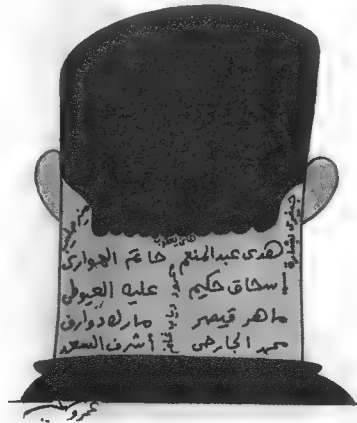 هاني يعقوب
هدى عبدالمنعم حاتم الهوارى
إسحاق حكيم عليه العيوطى
ماهر قيصر مارك دوارف
محمد الجارحى أشرف السعد
جيفرى بشارة